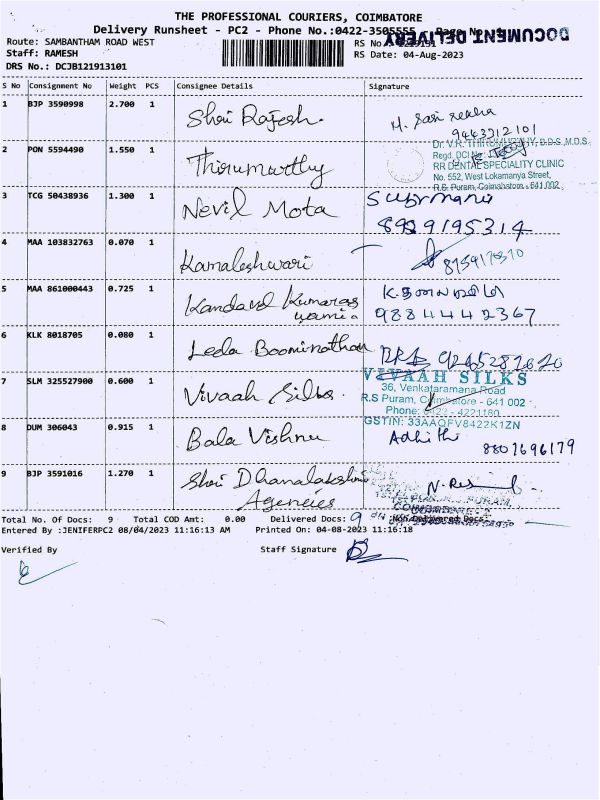 THE PROFESSIONAL COURIERS, COIMBATORE
Delivery Runsheet - PC2 - Phone No.:0422-3505555
DOCUMENT DELIVERY
Route: SAMBANTHAM ROAD WEST
Staff: RAMESH
RS Date: 04-Aug-2023
DRS No.: DCJB121913101
S No Consignment No Weight PCS Consignee Details Signature
1 BJP 3590998 2.700 1 Shri Rajesh. M. Sasi rekha
9443312101
2 PON 5594490 1.550 1 Thirumurthy
Dr. V.R. THIRUMURTHY, B.D.S.,M.D.S.
Regd. DCI
RR DENTAL SPECIALITY CLINIC
No. 552, West Lokamanya Street,
R.S. Puram, Coimabatore - 641 002.
3 TCG 50438936 1.300 1 Nevil Mota
8929195314
4 MAA 103832763 0.070 1 Kamaleshwari
5 MAA 861000443 0.725 1 Kandavel Kumaras
wami.
9884442367
6 KLK 8018705 0.080 1 Leela Boominathan
7 SLM 325527900 0.600 1 Vivaah Silks.
VIVAAH SILKS
36, Venkataramana Road
R.S Puram, Coimbatore - 641 002
Phone: 0422 - 4221180
GSTIN: 33AAQFV8422K1ZN
8 DUM 306043 0.915 1 Bala Vishnu Adhithi
8807696179
9 BJP 3591016 1.270 1 Shri Dhanalakshmi
Agencies
Total No. Of Docs: 9 Total COD Amt: 0.00 Delivered Docs: 9
Entered By :JENIFERPC2 08/04/2023 11:16:13 AM Printed On: 04-08-2023 11:16:18
Verified By Staff Signature